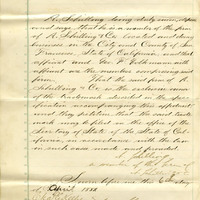 A. Schilling being duly sworn, deposes
and says that he is a member of the firm
of A. Schilling & Co. located and doing
business in the City and County of San
Francisco, State of California, and that
affiant and Geo. F. Volkmann with
affiant are the members composing said
firm.
That the said firm of A.
Schilling & Co. is the exclusive owner
of the trademark described in the
affidavit
and they petition that the said trade
mark may be filed in the office of the
Secretary of State of the State of Cal-
ifornia, in accordance with the law
in such cases made and provided.
A. Schilling
a member of the firm of
Sworn before me this 6th day
of April 1888